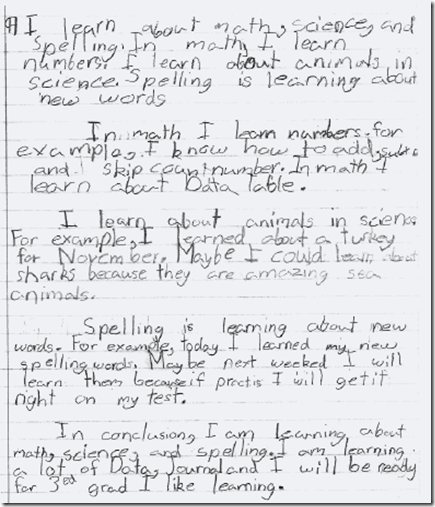 ¶I learn about math, science, and
spelling. In math, I learn
numbers. I learn about animals in
science. Spelling is learning about
new words
In math I learn numbers. for
example, I know how to add, subtra
and I skip count number. In math I
learn about Data Table.
I learn about animals in science.
For example, I learned about a turkey
for November. Maybe I could learn about
sharks because they are amazing sea
animals.
Spelling is learning about new
words. For example, today I learned my new
spelling words. Maybe next weeked I will
learn them because if practis I will get it
right on my test.
In conclusion, I am learning about
math, science, and spelling. I am learning
a lot of Data, Journal and I will be ready
for 3ed grad I like learning.